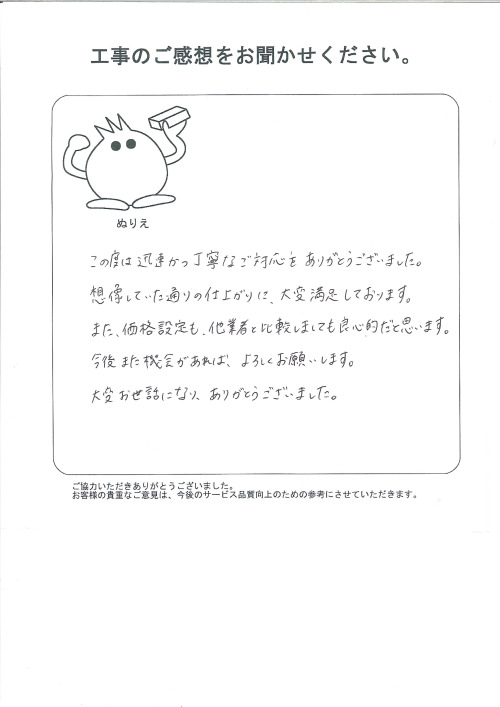 工事のご感想をお聞かせください。
ぬりえ
この度は迅速かつ丁寧なご対応をありがとうございました。
想像していた通りの仕上がりに、大変満足しております。
また、価格設定も、他業者と比較しましても良心的だと思います。
今後また機会があれば、よろしくお願いします。
大変お世話になり、ありがとうございました。
ご協力いただきありがとうございました。
お客様の貴重なご意見は、今後のサービス品質向上のための参考にさせていただきます。